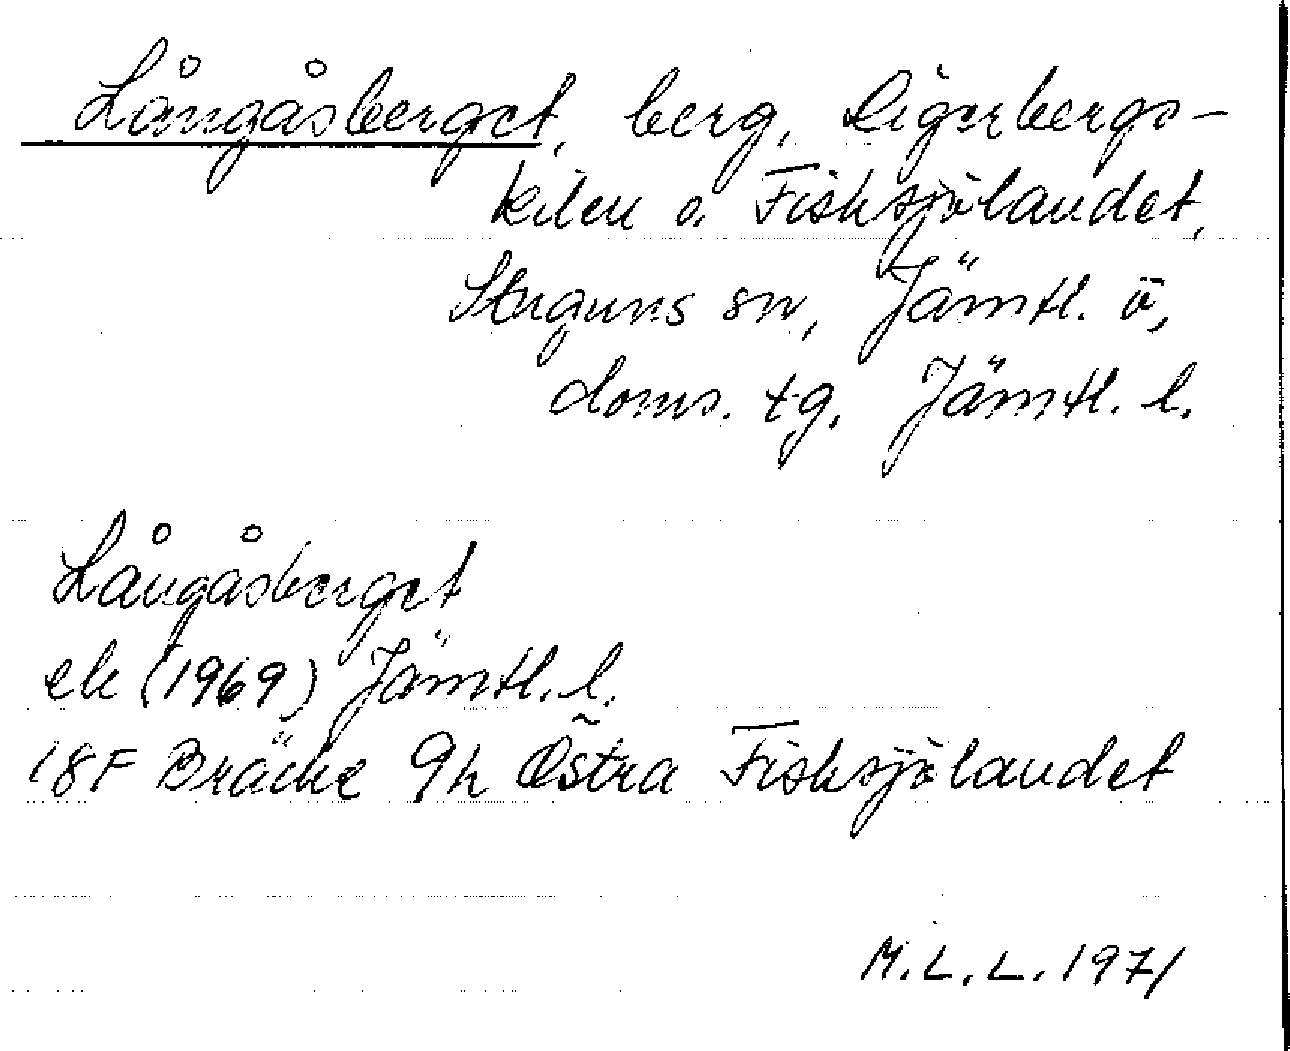 Långåsberget, berg, Digerbergs-
kilen o. Fisksjölandet,
Stuguns sn, Jämtl. ö,
doms. tg. Jämtl. l.
Långåsberget
ek (1969) Jämtl. l.
18F Bräcke 9h Östra Fisksjölandet
M.L.L. 1971